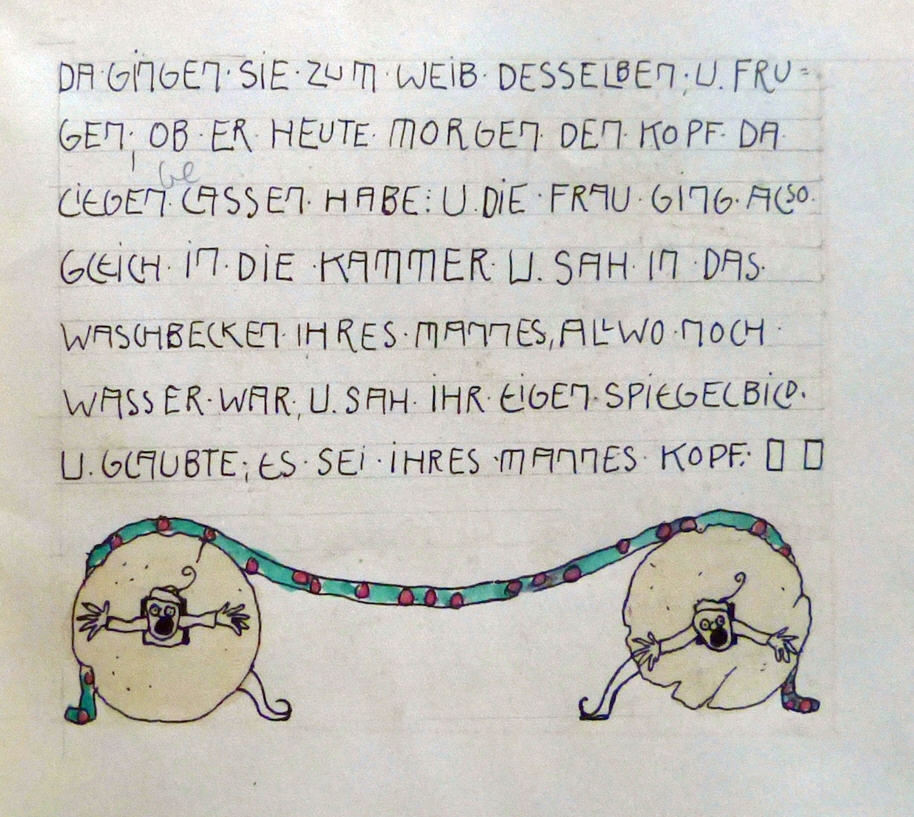 DA·GINGEN·SIE·ZUM·WEIB·DESSELBEN;U.FRU=
GEN, OB·ER·HEUTE·MORGEN·DEN·KOPF·DA·
be
LIEGEN·LASSEN·HABE:U.DIE·FRAU·GING·ALSO·
GLEICH·IN·DIE·KAMMER·U.SAH·IN·DAS·
WASCHBECKEN·IHRES·MANNES,ALLWO·NOCH·
WASSER·WAR,U.SAH·IHR·EIGEN·SPIEGELBILD.
U.GLAUBTE;ES·SEI·IHRES·MANNES·KOPF: